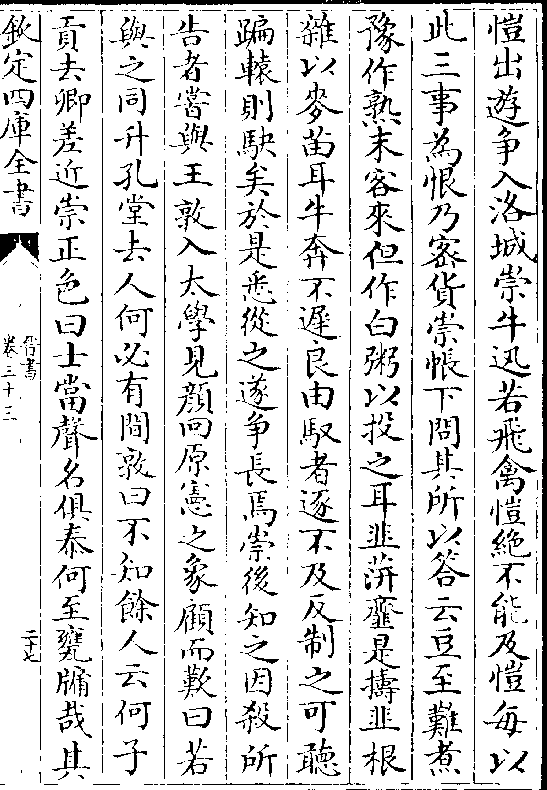 愷出遊争入洛城崇牛迅若飛禽愷絶不能及愷每以
此三事為恨乃密貨崇帳下問其所以答云豆至難煮
豫作熟末客來但作白粥以投之耳韭蓱虀是擣韭根
雜以麥苗耳牛奔不遲良由馭者逐不及反制之可聽
蹁轅則駃矣於是悉從之遂争長焉崇後知之因殺所
告者嘗與王敦入太學見顔回原憲之象顧而歎曰若
與之同升孔堂去人何必有間敦曰不知餘人云何子
貢去卿差近崇正色曰士當聲名俱泰何至甕牖哉其
欽定四庫全書
晉書
卷三十三
二十七